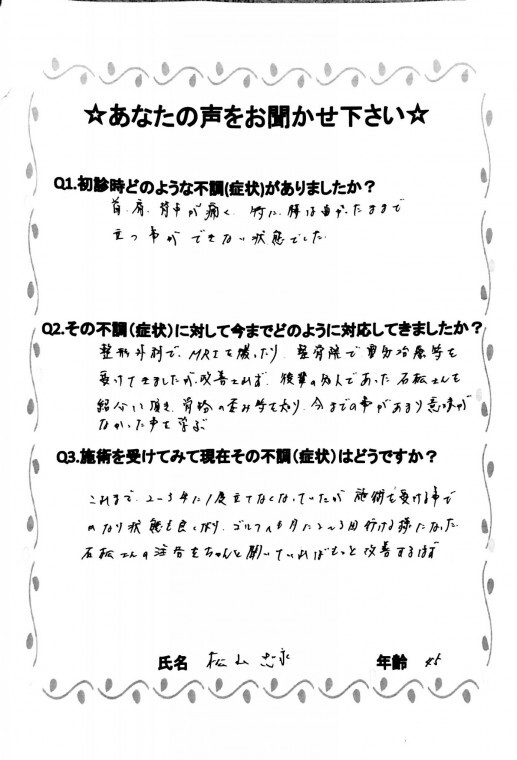 ☆あなたの声をお聞かせ下さい☆
Q1.初診時どのような不調(症状)がありましたか？
首、肩、背中が痛く、特に腰は曲がったままで
立つ事ができない状態でした
Q2.その不調（症状）に対して今までどのように対応してきましたか？
整形外科で、MRIを撮ったり、整骨院で電気治療等を
受けてきましたが改善されず、後輩の知人であった石松さんを
紹介して頂き、骨格の歪み等を知り、今までの事があまり意味が
なかった事を学ぶ
Q3.施術を受けてみて現在その不調（症状）はどうですか？
これまで、2〜3年に1度立てなくなっていたが 施術を受ける事で
かなり状態も良くなり、ゴルフへも月に2〜3回行ける様になった
石松さんの注告をちゃんと聞いていればもっと改善するはず
氏名 松山 忠永 年齢 45